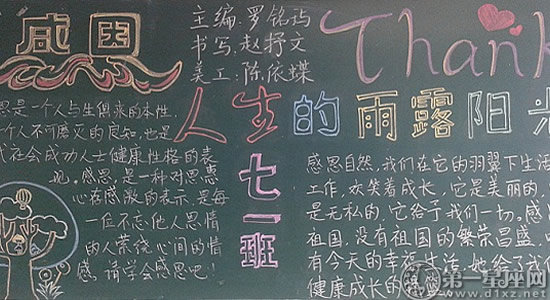 感因
主编:罗铭玙
书写:赵抒文
美工:陈依蝶
Thank
人生的雨露阳光
七一班
恩是一个人与生俱来的本性,
个人不可磨灭的良知,也是
代社会成功人士健康性格的表
现。感恩,是一种对恩惠
心存感激的表示,是每
一位不忘他人恩情
的人萦绕心间的情
感。请学会感恩吧!
感恩自然,我们在它的羽翼下生活
工作,欢笑着成长,它是美丽的,
是无私的,它给于我们一切。感
祖国,没有祖国的繁荣昌盛,
有今天的幸福生活,她给了我
健康成长的
第一星座网
www.d1xz.net